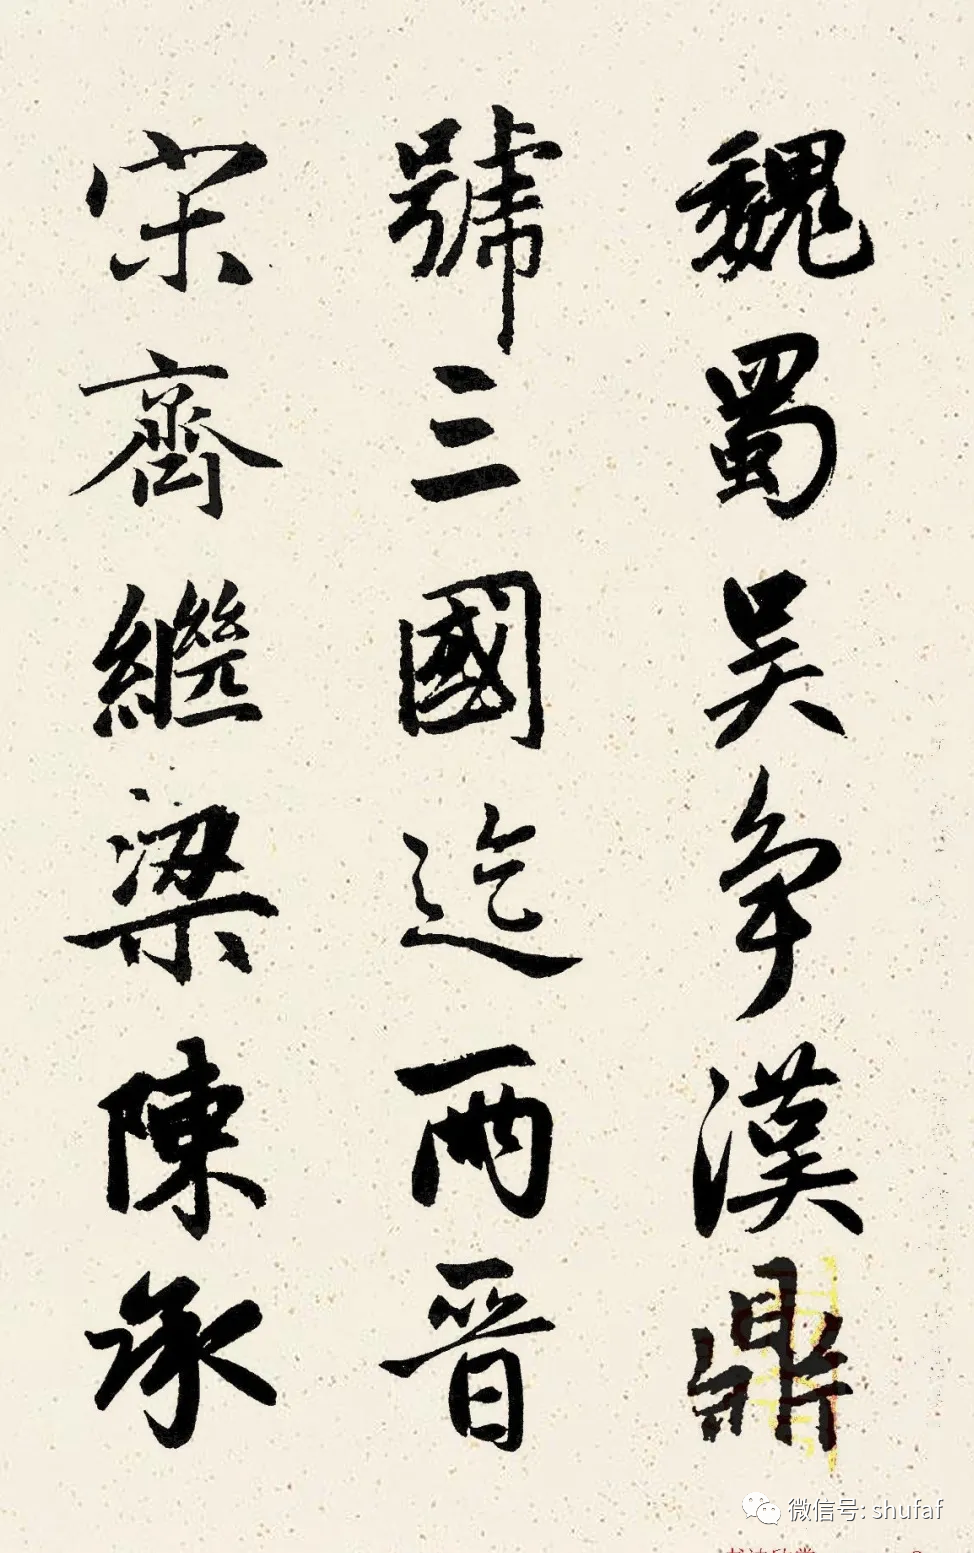 魏蜀吴争漢鼎
號三國迄兩晋
宋齊繼梁陳承
微信号: shufaf